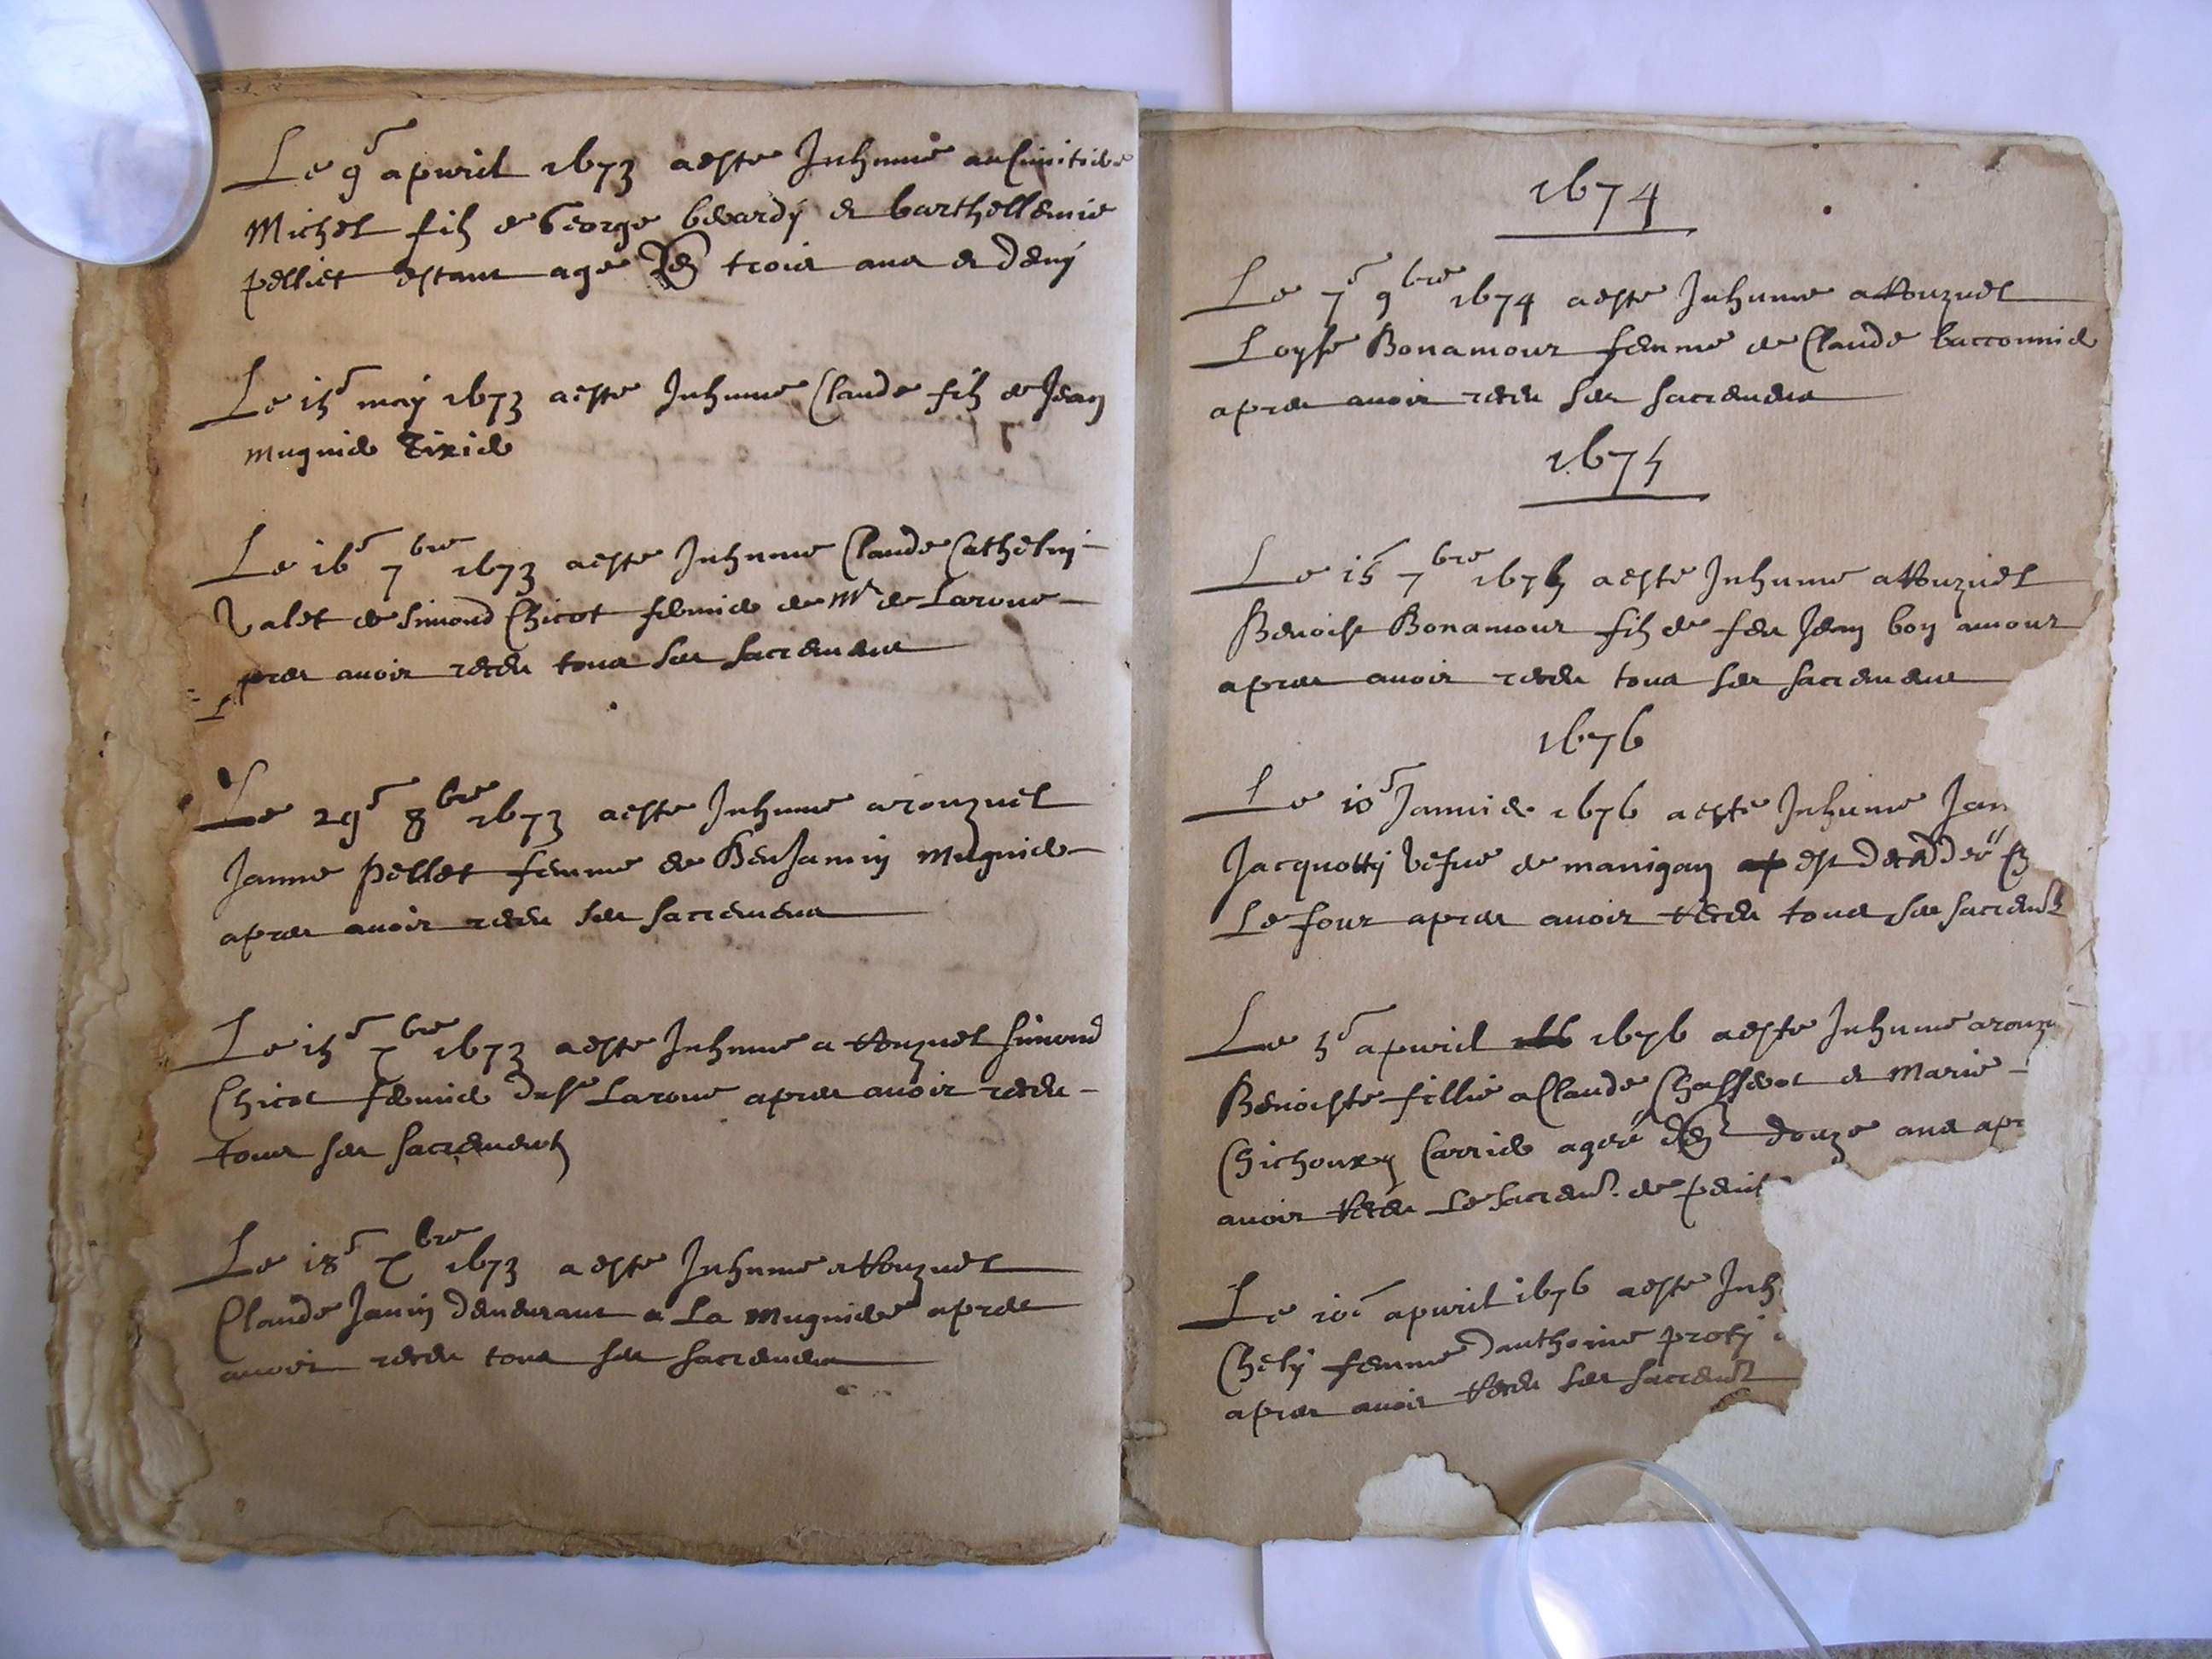 Le 9e apvril 1673 a este Inhume au Cimitiere
Michel fils de George berardy et barthellemie
pelliet estant age den trois ans et demy
Le 15e may 1673 a este Inhume Claude fils de Jean
mugnier Tixier
Le 16e 7bre 1673 a este Inhume Claude Catheliny
Valet de Simond Chicot fermier de Mr de Laroue
apres avoir receu tous ses sacremens
Le 29e 8bre 1673 a este Inhume a rouzuel
Janne Pellet femme de Benjamin Mugnier
apres avoir receu ses sacremens
Le 15e Xbre 1673 a este Inhume a Rouzuel Simond
Chicot fermier de Laroue apres avoir receu
tous ses sacrements
Le 18e Xbre 1673 a este Inhume a Rouzuel
Claude Janin demeurant a La Mugniere apres
avoir receu tous ses sacremens
1674
Le 7e 9bre 1674 a este Inhume a Rouzuel
Loyse Bonamour femme de Claude bacconnier
apres avoir receu ses sacremens
1675
Le 15 7bre 1675 a este Inhume a Rouzuel
Benoist Bonamour fils de feu Jean bon amour
apres avoir receu tous ses sacremens
1676
Le 10e Janvier 1676 a este Inhume Jan
Jacquotty vefve de manigan est decedee
Le four apres avoir Receu tous ses sacremt
Le 5e apvril 1676 a este Inhume a rouzu
Benoiste fillie a Claude Chassevot et Marie
Chichouxy Carrier agee den douze ans apr
avoir Receu Le sacremt de penit
Le 10e apvril 1676 a este Inh
Chely femme danthoine proty
apres avoir Receu ses sacremt